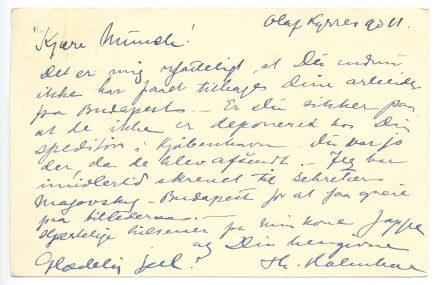 Olaf Kyrres gd 11.
Kjære Munch!
Det er mig ufatteligt, at Du endnu
ikke har faaet tilbage Dine arbeider
fra Budapest. – Er Du sikker paa
at de ikke er deponeret hos Din
speditør i Kjøbenhavn – Du var jo
der da de blev afsendt. – Jeg har
imidlertid skrevet til sekretær
Magovsky – Budapest for at faa greie
paa billederne. –
Hjertelige hilsener fra min kone Jappe
og Din hengivne
Glædelig jul! Th. Holmboe